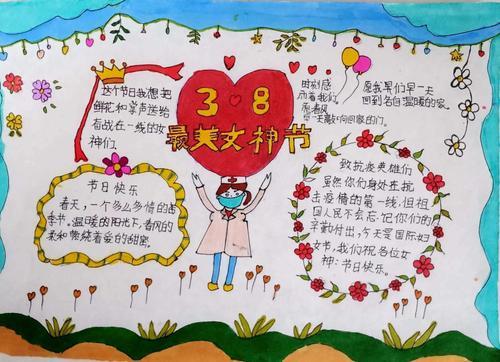 这个节日我想把
鲜花和掌声送给
奋战在一线的女
神们.
3·8
最美女神节
时刻感
动着我们.
愿春风
早一天敲响回家的门.
愿我们早一天
回到各自温暖的家.
节日快乐
春天,一个多么多情的
季节。温暖的阳光下,春风的
柔和
着爱的甜蜜.
致抗疫英雄们
虽然你们身处在抗
击疫情的第一线,但祖
国人民不会忘记你们的
辛勤付出,今天是国际妇
女节,我们祝各位女
神:节日快乐。